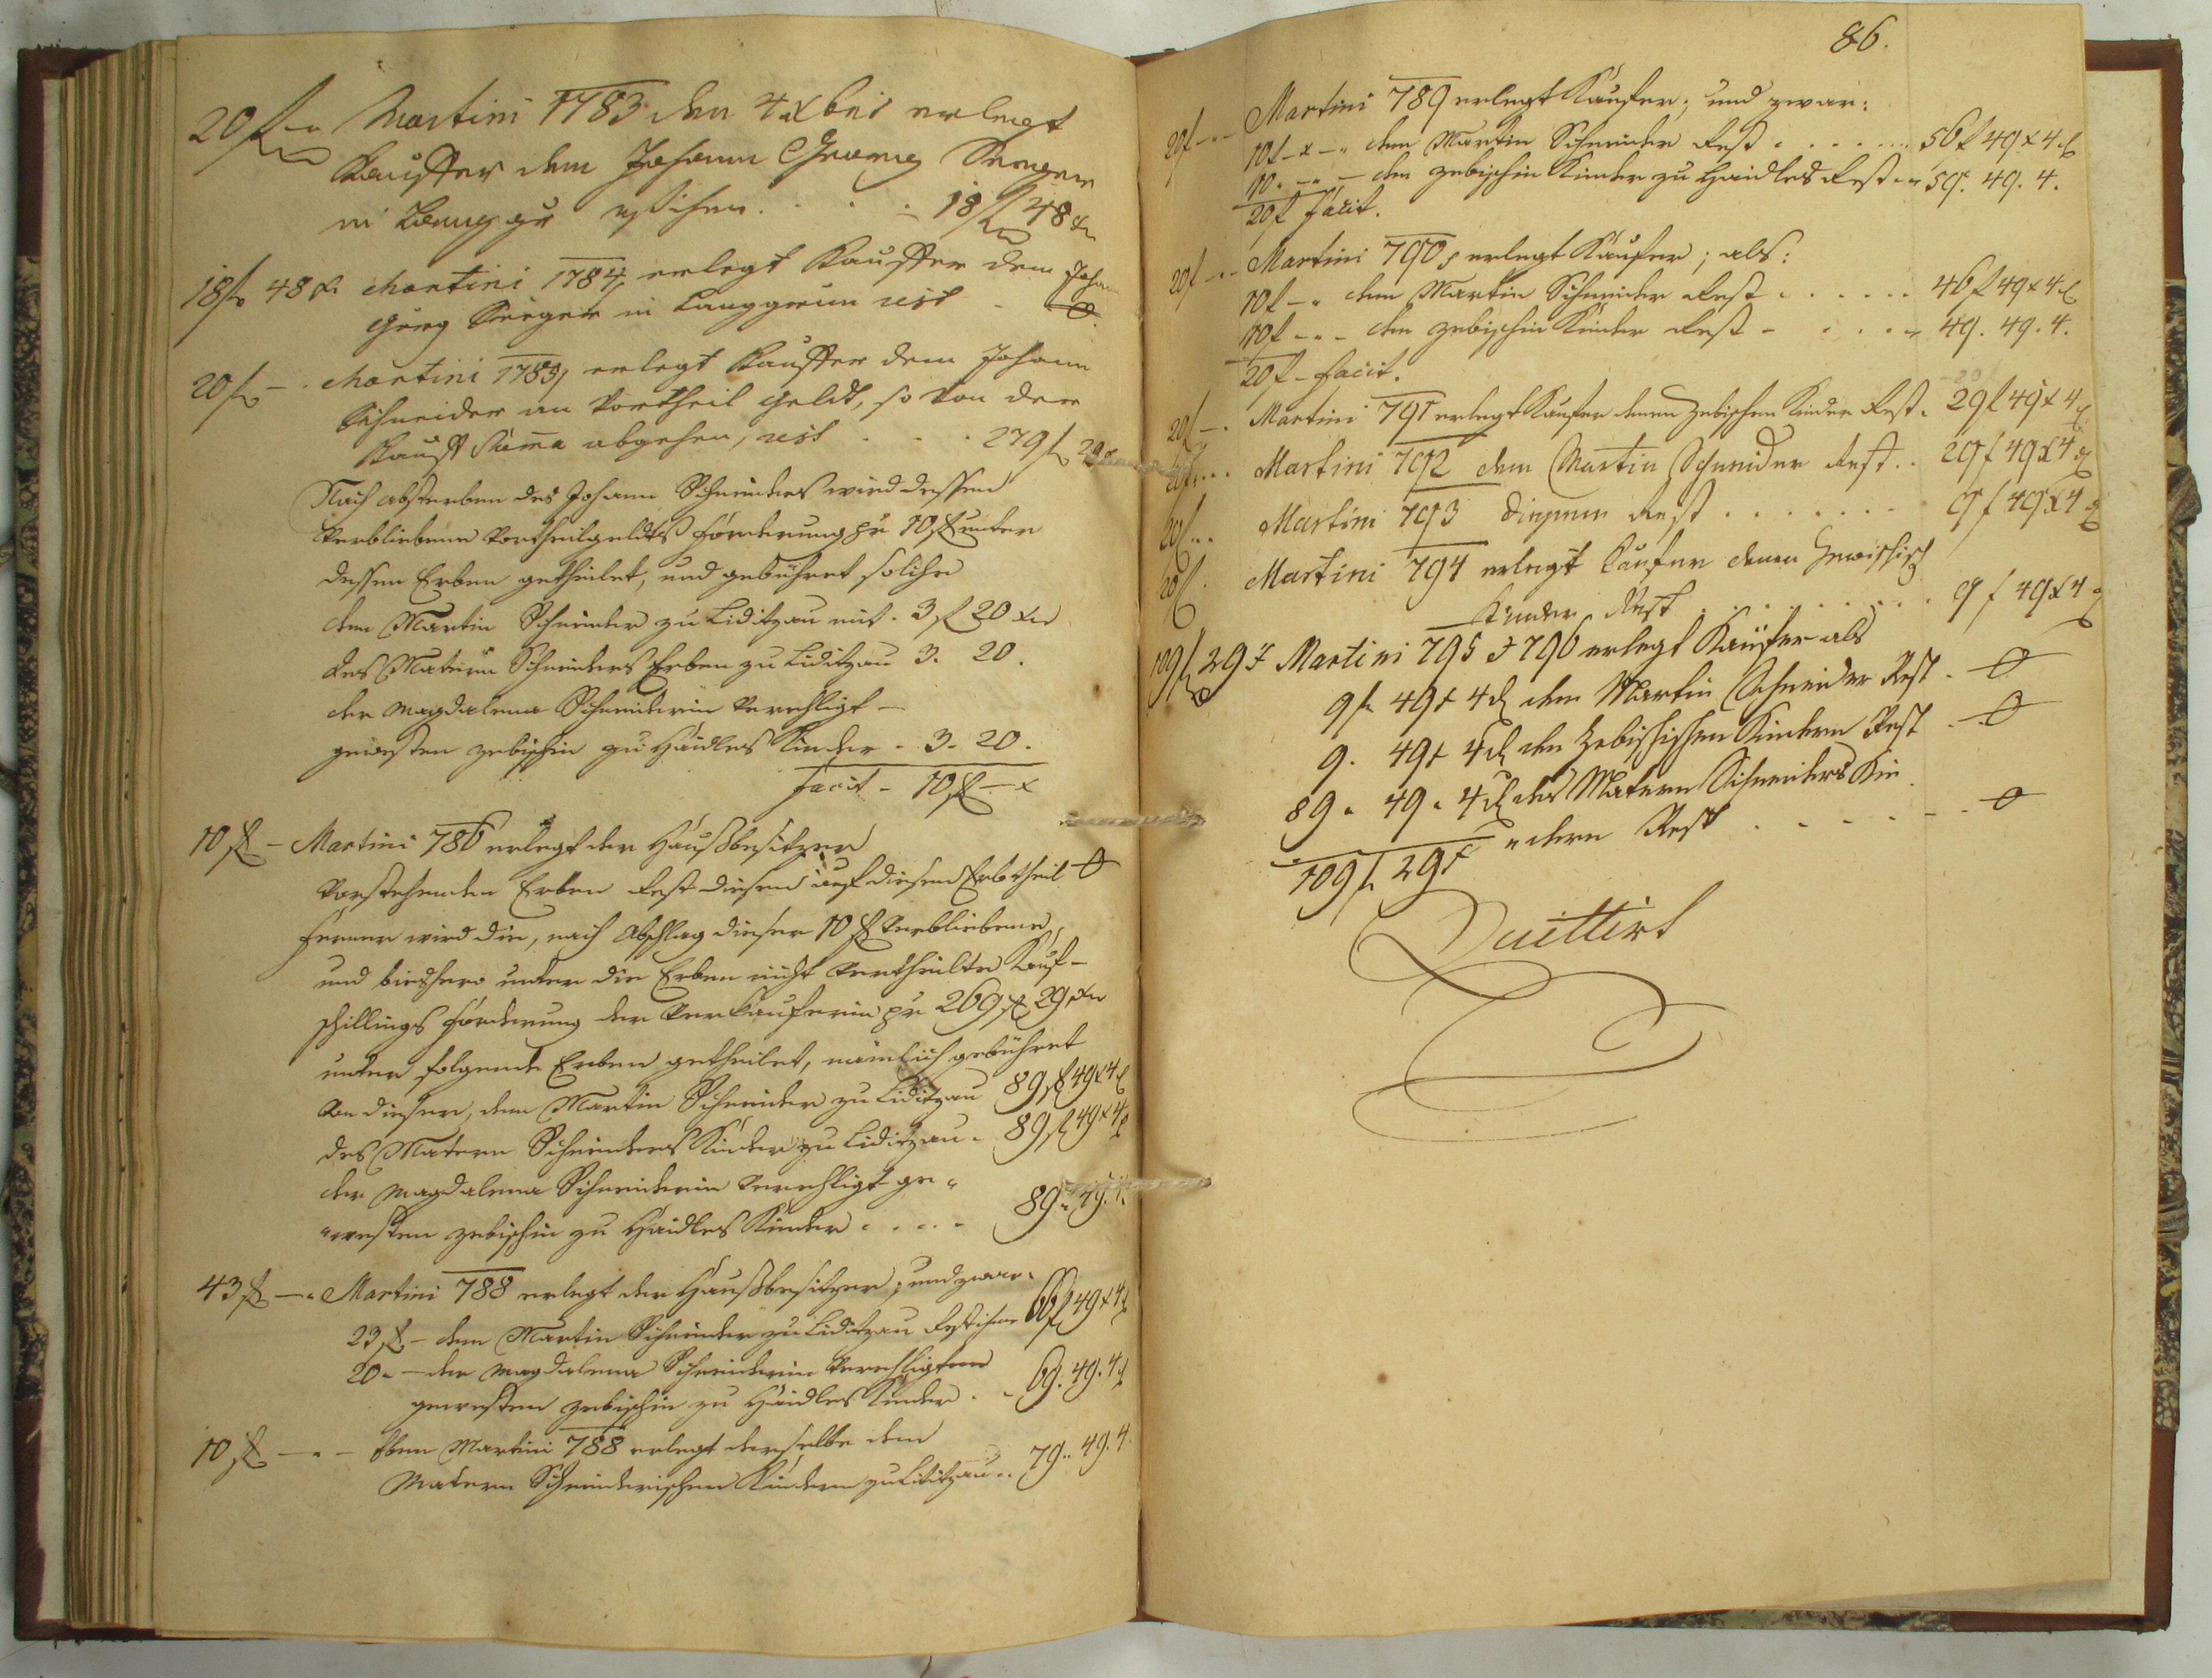 20 f — Martini 1783 den 4 Xbris erlegt
Kauffer dem Johann Georg
in Langgr
18 f 48 x
18 f 48 x Martini 1784 erlegt Kauffer dem Joha
Görg in Langgrün rest - 0
20 f — Martini 1785 erlegt Kauffer dem Johann
Schneider an Vortheil Geldt, so von der
Kauff Suma abgehen, rest . . . 279 f 29 x
Nach Absterben des Johann Schneiders wird dessen
verbliebene Vortheilgeldts Forderung pr 10 f unter
dessen Erben getheilet, und gebühret solche
dem Martin Schneider zu Liditzau mit . 3 f 20 xr
des Matern Schneiders Erben zu Liditzau 3. 20.
der Magdalena Schneiderin verehligt —
gewesten Zebischin zu Haidles Kinder - 3. 20.
facit - 10 f — x
10 f — Martini 786 erlegt der Haußbesitzer
Vorstehenden Erben Rest diesen auf diesen Erbtheil 0
Ferner wird die, nach Abschlag dieser 10 f verbliebene,
und bieshero unter die Erben nicht vertheilte Kauf-
schillings Forderung der Verkauferin pr 269 f 29 xr
unter folgende Erben getheilet, nämlich gebühret
Von dieser, dem Martin Schneider zu Liditzau 89 f 49 x 4 d
des Matern Schneiders Kinder zu Liditzau . 89 f 49 x 4 d
der Magdalena Schneiderin verehligt ge "
"westen Zebischin zu Haidles Kinder . . . . 89. 49. 4.
43 f — Martini 788 erlegt der Haußbesitzer, und zwar.
23 f — dem Martin Schneider zu Liditzau Rest ihme 66 f 49 x 4 d
20 . — der Magdalena Schneiderin verehligten
gewesten Zebischin zu Haidles Kinder . . 69. 49. 4 d
10 f — . — Eben Martini 788 erlegt derselbe dem
Matern Schneiderischen Kindern zu Liditzau .. 79.. 49. 4.
86.
Martini 789 erlegt Käufer; und zwar:
20 f - - 10 f - x - " dem Martin Schneider Rest . . . . . . 56 f 49 x 4 d
10. - " - den Zebischin Kinder zu Haidles Rest - " 59. 49. 4.
20 f facit.
20 f - - Martini 790 erlegt Käufer; als:
10 f - " dem Martin Schneider Rest . . . . . 46 f 49 x 4 d
10 f - - - den Zebischin Kinder Rest - . . . . 49. 49. 4.
20 f - facit.
20 f - . Martini 791 erlegt Käufer denen Zebischen Kinder Rest . 29 f 49 x 4 d
20 f . . . Martini 792 dem Martin Schneider Rest . . 29 f 49 x 4 d
20 f . . . Martini 793 Rest . . . . . . . 9 f 49 x 4 d
20 f . Martini 794 erlegt Käufer denen
Kinder Rest . . . . . . . . 9 f 49 x 4 d
109 f 29 x Martini 795 & 796 erlegt Käufer als
9 f 49 x 4 d dem Martin Schneider Rest . 0
9. 49 x 4 d den Zebischischen Kindern Rest . 0
89 . 49 . 4 d des Matern Schneiders Kin
"dern Rest . . . . . . 0
109 f 29 x
Quittirt